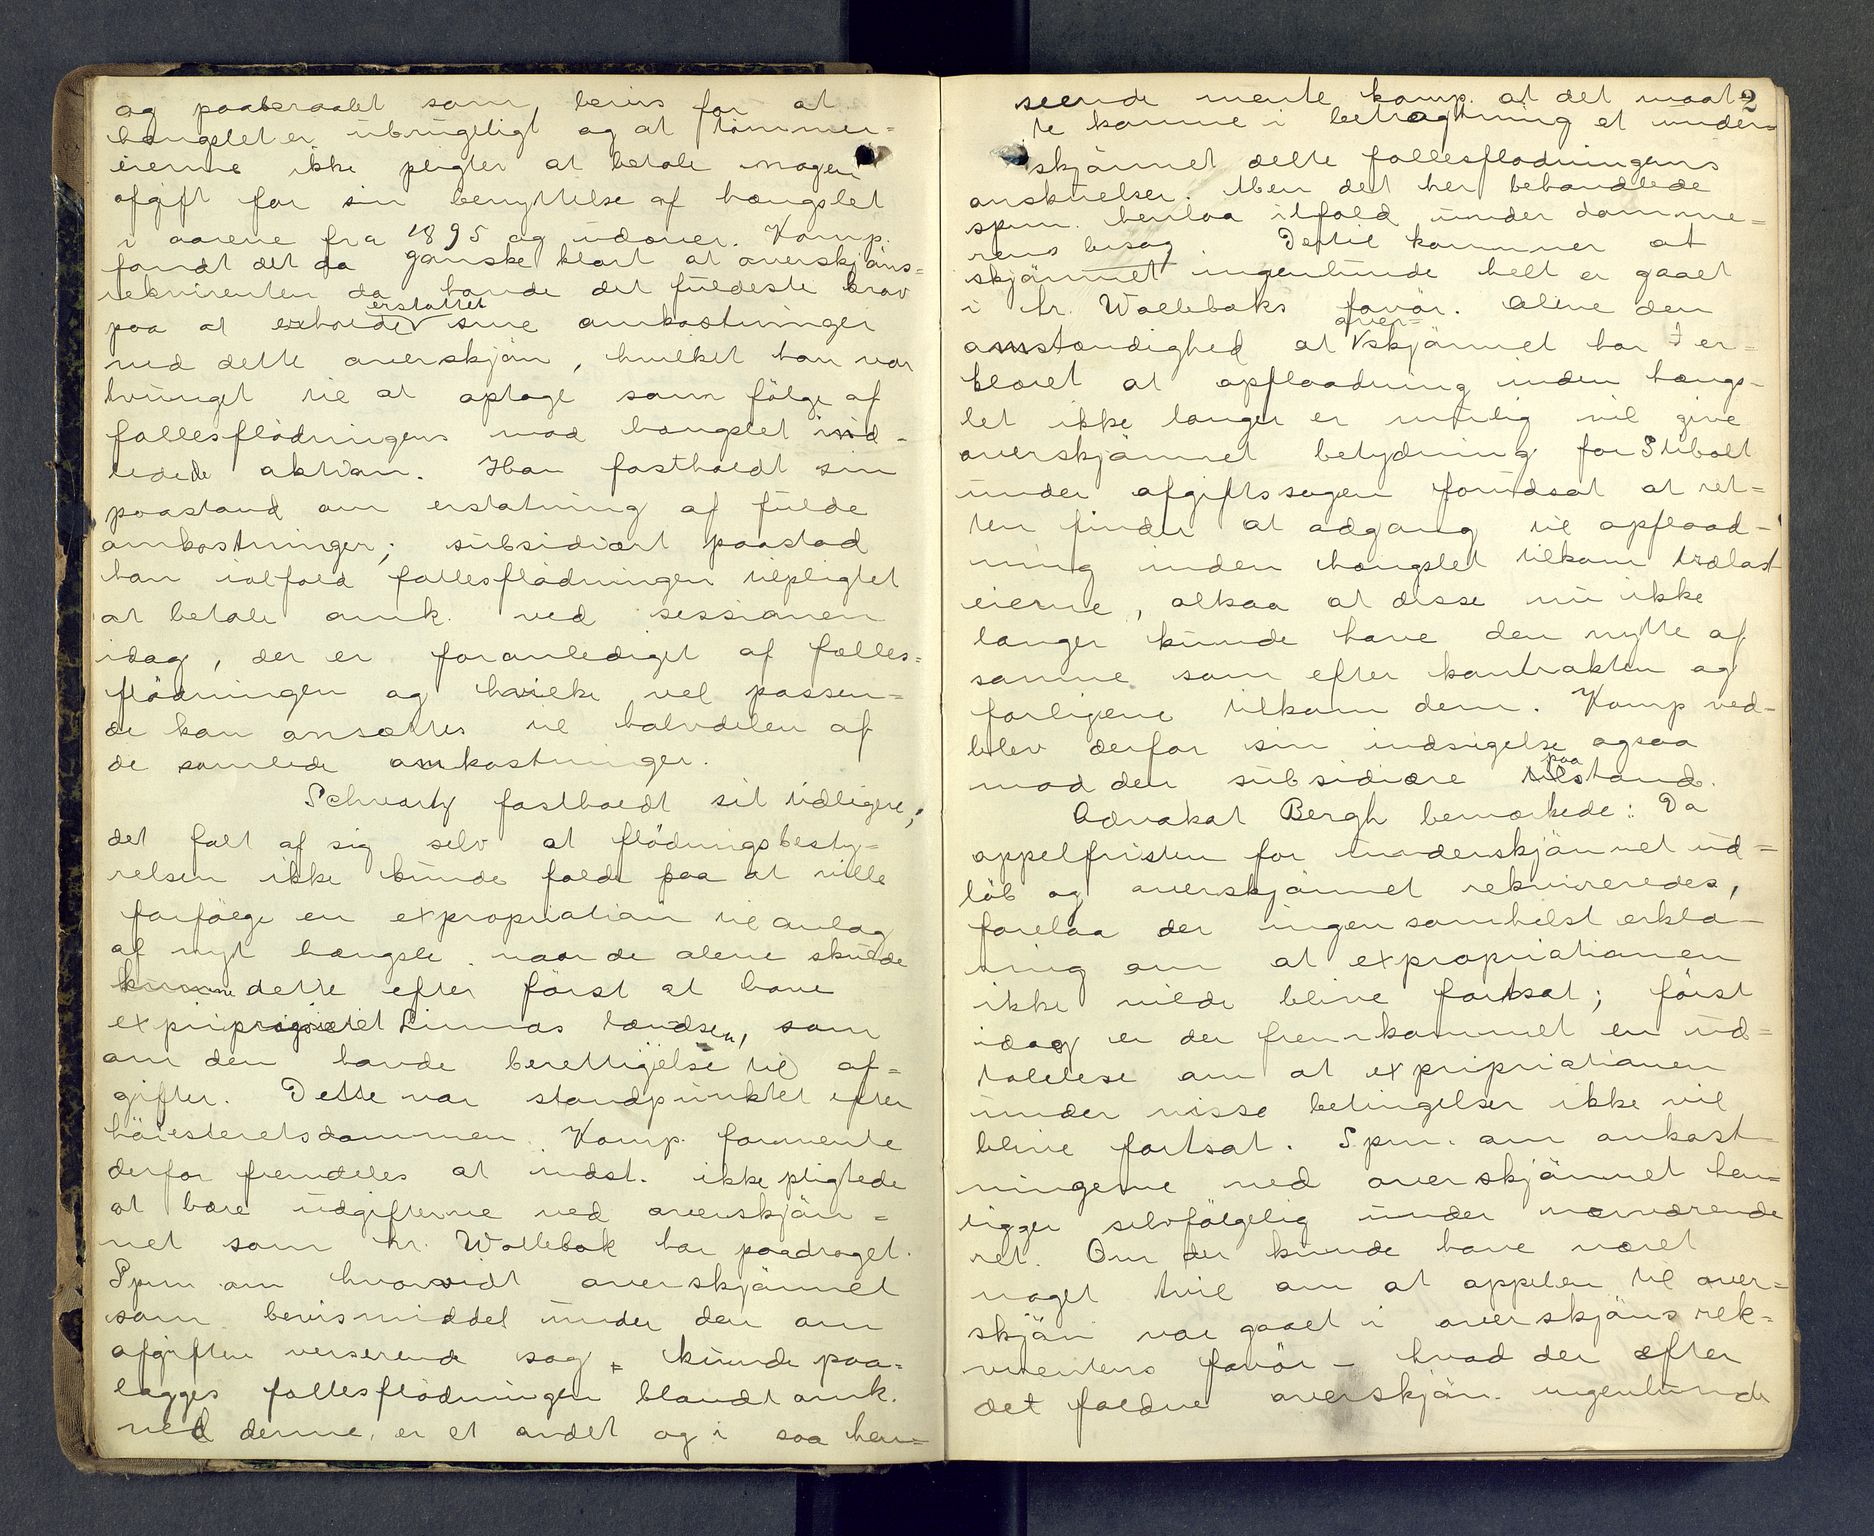 og paaberaabt som bevis for at
hængslet er ubrugeligt og at tømmer=
eierne ikke pligter at betale nogen
afgift for sin benyttelse af hængslet
i aarene fra 1895 og udover. Komp.
fandt det da ganske klart at overskjøns=
rekvirenten da havde det fuldeste krav
paa at erstattet sine omkostninger
ved dette overskjøn, hvilket han var
tvunget til at optage som følge af
fællesflødningens mod hængslet ind=
ledede aktion. Han fastholdt sin
paastand om erstatning af fulde
omkostninger; subsidiært paastod
han ialfald fællesflødningen tilpligtet
at betale omk. ved sessionen
idag, der er foranlediget af fælles=
flødningen og hvilke vel passen=
de kan ansættes til halvdelen af
de samlede omkostninger.
Schwartz fastholdt sit tidligere;
det falt af sig selv at flødningsbesty=
relsen ikke kunde falde paa at ville
forfølge en expropriation til anlæg
af nyt hængsle naar de alene skulde
kunne dette efter først at have
expriprieret Linnas lændsen, som
om den havde berettigelse til af=
gifter. Dette var standpunktet efter
høiesteretsdommen. Komp. formente
derfor fremdeles at indst. ikke pligtede
at bære udgifterne ved overskjøn=
net som hr. Wollebæk har paadraget.
Spm om hvorvidt overskjønnet
som bevismiddel under den om
afgiften verserende sag kunde paa=
lægges fællesflødningen blandt omk.
ved denne, er et andet og i saa hen=
2
seende mente komp. at det maat=
te komme i betragtning at under=
skjønnet delte fællesflødningens
anskuelser. Men det her behandlede
spm. henlaa ialfald under domme=
rens besøg. Dertil kommer at
skjønnet ingenlunde helt er gaaet
i hr. Wollebæks favør. Alene den
omstændighed at over=skjønnet har er=
klæret at opflaadning inden hængs=
let ikke længer er mulig vil give
overskjønnet betydning for Stibolt
under afgiftssagen forudsat at ret=
ten finder at adgang til opflaad=
ning inden hængslet tilkom trælast
eierne, altsaa at disse nu ikke
længer kunde have den nytte af
samme som efter kontrakten og
forligene tilkom dem. Komp ved=
blev derfor sin indsigelse ogsaa
mod den subsidiære paastand.
Advokat Bergh bemærkede: Da
appelfristen for underskjønnet ud=
løb og overskjønnet rekvireredes,
forelaa der ingen somhelst erklæ=
ring om at expropriationen
ikke vilde blive fortsat; først
idag er der fremkommet en ud=
talelse om at expripriationen
under visse betingelser ikke vil
blive fortsat. Spm. om omkost=
ningerne ved overskjønnet hen=
ligger selvfølgelig under nærværende
ret. Om der kunde have været
noget tvil om at appelen til over=
skjøn var gaaet i overskjøns rek=
virentens favør - hvad der efter
det faldne overskjøn ingenlunde